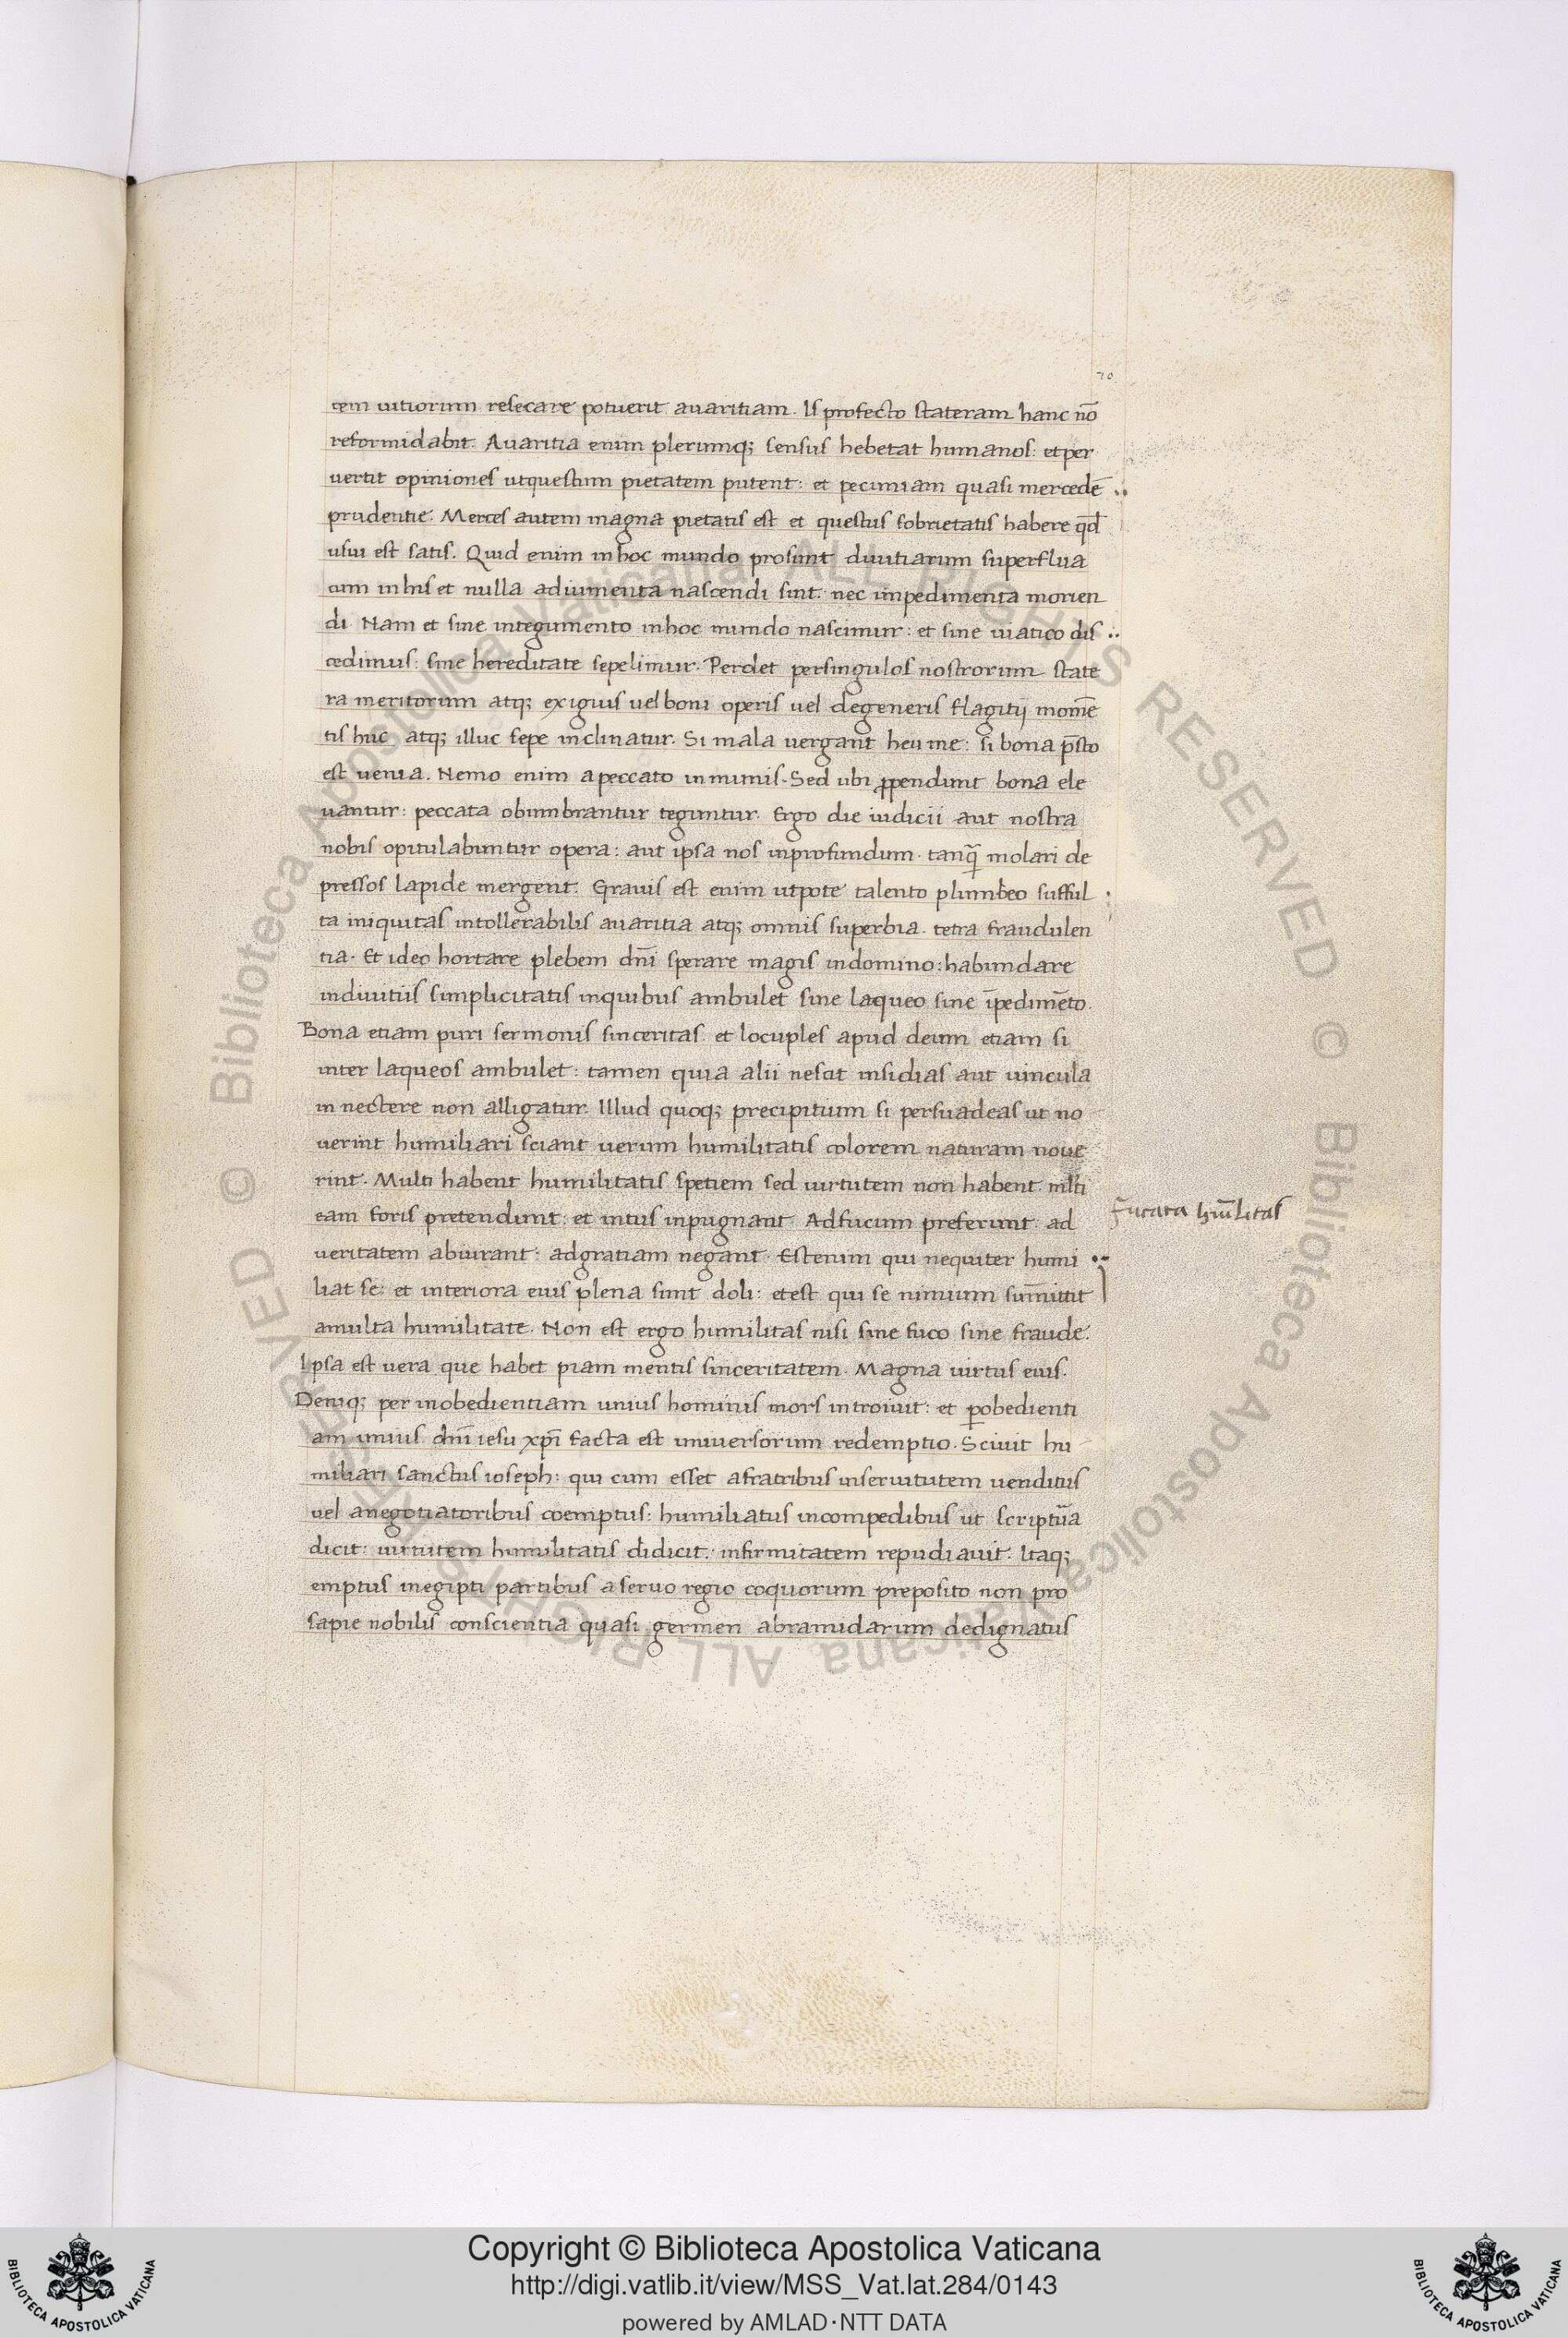 70
cem uitiorum resecare potuerit auaritiam. Is profecto stateram hanc nō
reformidabit. Auaritia enim plerumq; sensus hebetat humanos: et per
uertit opiniones ut questum pietatem putent: et pecuniam quasi mercedē
prudentie. Merces autem magna pietatis est et questus sobrietatis habere qd̄
usui est satis. Quid enim in hoc mundo prosunt diuitiarum superflua
cum in his et nulla adiumenta nascendi sint: nec impedimenta morien
di. Nam et sine integumento in hoc mundo nascimur: et sine uiatico dis
cedimus: sine hereditate sepelimur. Perdet per singulos nostrorum state
ra meritorum atq; exiguis uel boni operis uel degeneris flagitij momē
tis huc atq; illuc sepe inclinatur. Si mala uergant heu me: si bona p̄sto
est uenia. Nemo enim a peccato inmunis. Sed ubi ꝓpendunt bona ele
uantur: peccata obumbrantur teguntur. Ergo die iudicii aut nostra
nobis opitulabuntur opera: aut ipsa nos in profundum. tanq̄ molari de
pressos lapide mergent. Grauis est enim utpote talento plumbeo sufful
ta iniquitas intollerabilis auaritia atq; omnis superbia. tetra fraudulen
tia. Et ideo hortare plebem dn̄i sperare magis in domino: habundare
in diuitiis simplicitatis in quibus ambulet sine laqueo sine īpedimēto.
Bona etiam puri sermonis sinceritas. et locuples apud deum etiam si
inter laqueos ambulet: tamen quia alii nescit insidias aut uincula
in nectere non alligatur. Illud quoq; precipitium si persuadeas ut no
uerint humiliari sciant uerum humilitatis colorem naturam noue
rint. Multi habent humilitatis spetiem sed uirtutem non habent. ml̄ti
eam foris pretendunt: et intus inpugnant. Ad fucum preferunt. ad
fūcata hum̄litas
ueritatem abiurant: ad gratiam negant. Est enim qui nequiter humi
liat se: et interiora eius plena sunt doli: et est qui se nimium sum̄ittit
a multa humilitate. Non est ergo humilitas nisi sine fuco sine fraude.
Ipsa est uera que habet piam mentis sinceritatem. Magna uirtus eius.
Deniq; per inobedientiam unius hominis mors introiuit: et ꝑobedienti
am unius dn̄i iesu xp̄i facta est uniuersorum redemptio. Sciuit hu
miliari sanctus ioseph: qui cum esset a fratribus in seruitutem uenditus
uel a negotiatoribus coemptus: humiliatus in compedibus ut scriptūa
dicit: uirtutem humilitatis didicit: infirmitatem repudiauit. Itaq;
emptus in egipti partibus a seruo regio coquorum preposito non pro
sapie nobilis conscientia quasi germen abramidarum dedignatus
© Biblioteca Apostolica Vaticana ALL RIGHTS RESERVED © Biblioteca Apostolica Vaticana ALL RIGHTS RESERVED
Copyright © Biblioteca Apostolica Vaticana
http://digi.vatlib.it/view/MSS_Vat.lat.284/0143
powered by AMLAD·NTT DATA
BIBLIOTECA APOSTOLICA VATICANA
BIBLIOTECA APOSTOLICA VATICANA